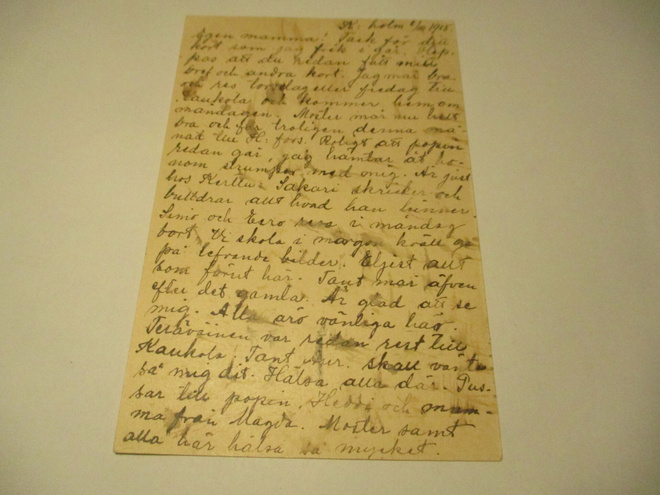 K:holm 6/III 1918.
Egen mamma! Tack för ditt
kort som jag fick i går. Hop-
pas att du redan fått mitt
bref och andra kort. Jag mår bra
och res torsdag eller fredag till
Kaukola och kommer hem om
måndagen. Moster mår nu helt
bra och far troligen denna må-
nad till H:fors. Roligt att popen
redan går, jag hämtar åt ho-
nom strumpor med mig. Är just
hos Kerttu. Sakari skriker och
bulldrar allt hvad han hinner.
Simo och Eero resa i måndag
bort. Vi skola i morgon kväll gå
på lefvande bilder. Eljest allt
som förut här. Tant mår äfven
efter det gamla. Är glad att se
mig. Alla äro vänliga här.
Teräväinen var redan rest till
Kaukola. Tant skall vänta
så mig dit. Hälsa alla där. Pus-
sar till popen, Heddi och mam-
ma från Magda. Moster samt
alla här hälsa så mycket.